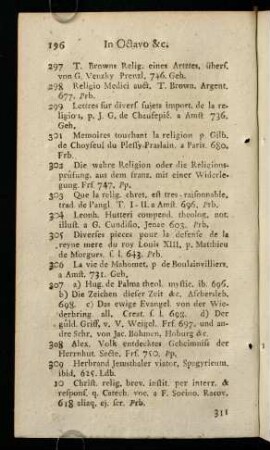 196 In Octavo &c.
297 T. Browns Relig. eines Artztes, übers.
von G. Venzky Prenzl. 746. Geh.
298 Religio Medici auct. T. Brown. Argent.
677. Prb.
299 Lettres sur divers sujets import. de la re-
ligion, p. J. G. de Chaufepié. a Amst 736.
Geh.
301 Memoires touchant la religion p. Gilb.
de Choyseul du Plessy-Praslain. a Paris. 680.
Frb.
302 Die wahre Religion oder die Religions-
prüfung, aus dem franz. mit einer Widerle-
gung. Frf. 747. Pp.
303 Que la relig. chret. est tres-raisonnable,
trad. de l'angl. T. I-II. a Amst. 696. Prb.
304 Leonh. Hutteri compend. theolog. not.
illust. a G. Cundisio. Jenae 603. Prb.
305 Diverses pieces pour la defense de la
reyne mere du roy Louis XIII, p. Matthieu
de Morgues. s. l. 643. Prb.
306 La vie de Mahomet, p de Boulainvilliers.
a Amst. 731. Geh.
307 a) Hug. de Palma theol. mystic. ib. 696.
b) Die Zeichen dieser Zeit &c. Aschersleb.
698. c) Das ewige Evangel. von der Wie-
derbring. all. Creat. s. l. 698. d) Der
güld. Griff, v. V. Weigel. Frf. 697. und an-
dre Schr. von Jac. Böhmen, Hoburg &c.
308 Alex. Volk entdecktes Geheimniss der
Herrnhut. Secte. Frf. 750. Pp.
309 Herbrand Jemsthaler viator, Spagyricum.
ibid, 625. Ldb.
10 Christ. relig. brev. instit. per interr. &
respons. q. Catech. voc. a F. Socino. Racov.
618 aliaq. ej. scr. Prb.
311